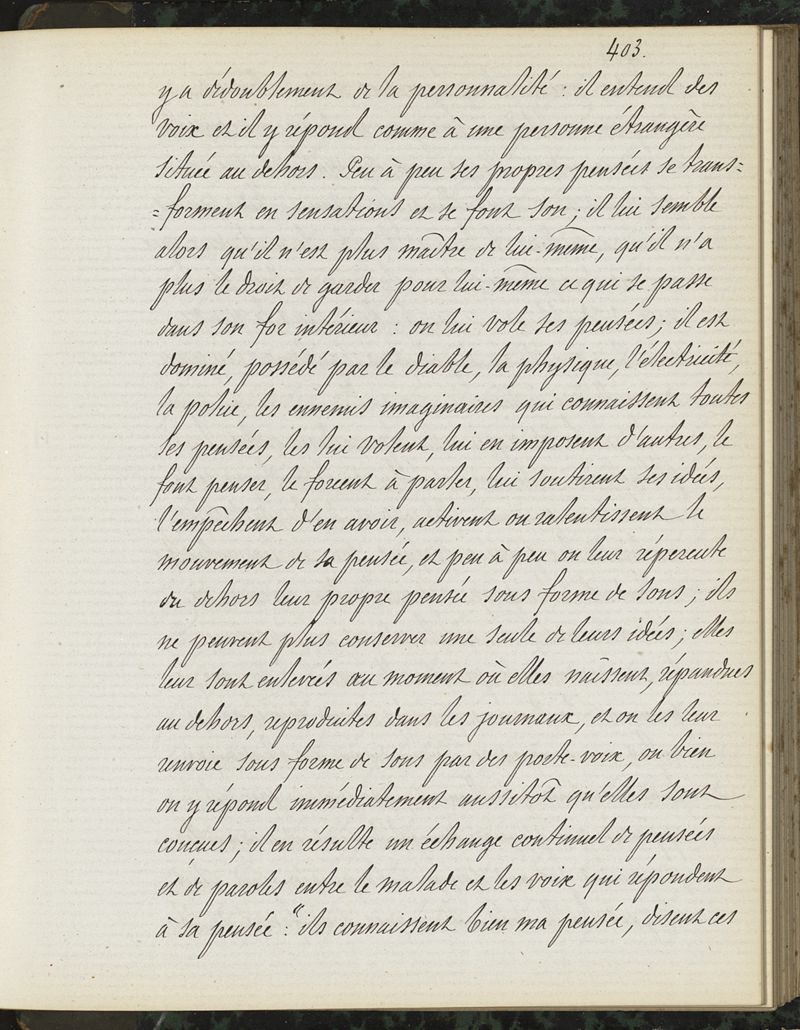 403.
y a dédoublement de la personnalité : il entend des
voix et il y répond comme à une personne étrangère
située au dehors. Peu à peu ses propres pensées se trans=
=forment en sensations et se font son ; il lui semble
alors qu'il n'est plus maître de lui-même, qu'il n'a
plus le droit de garder pour lui-même ce qui se passe
dans son for intérieur : on lui vole ses pensées ; il est
dominé, possédé par le diable, la physique, l'électricité,
la police, les ennemis imaginaires qui connaissent toutes
ses pensées, les lui volent, lui en imposent d'autres, le
font penser, le forcent à parler, lui soutirent ses idées,
l'empêchent d'en avoir, activent ou ralentissent le
mouvement de sa pensée, et peu à peu on leur répercute
du dehors leur propre pensée sous forme de sons ; ils
ne peuvent plus conserver une seule de leurs idées ; elles
leur sont enlevées au moment où elles naissent, répandues
au dehors, reproduites dans les journaux, et on les leur
renvoie sous forme de sons par des porte-voix, ou bien
on y répond immédiatement aussitôt qu'elles sont
conçues ; il en résulte un échange continuel de pensées
et de paroles entre le malade et les voix qui répondent
à sa pensée : "ils connaissent bien ma pensée, disent ces